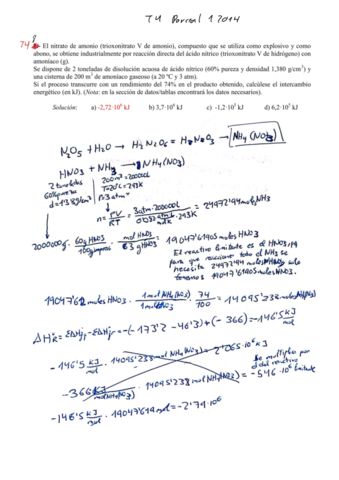 T4 Parcial 1 2014
74 El nitrato de amonio (trioxonitrato V de amonio), compuesto que se utiliza como explosivo y como
abono, se obtiene industrialmente por reacción directa del ácido nítrico (trioxonitrato V de hidrógeno) con
amoníaco (g).
Se dispone de 2 toneladas de disolución acuosa de ácido nítrico (60% pureza y densidad 1,380 g/cm³) y
una cisterna de 200 m³ de amoníaco gaseoso (a 20 ºC y 3 atm).
Si el proceso transcurre con un rendimiento del 74% en el producto obtenido, calcúlese el intercambio
energético (en kJ). (Nota: en la sección de datos/tablas encontrará los datos necesarios).
Solución: a) -2,72·10⁶ kJ b) 3,7·10⁶ kJ c) -1,2·10⁵ kJ d) 6,2·10⁵ kJ
N₂O₅ + H₂O → H₂N₂O₆ = HNO₃ → NH₄(NO₃)
HNO₃ + NH₃ → NH₄(NO₃)
2 toneladas 200m³ = 200000L
60% pureza T=20ºC = 293K
d=1'38 g/cm³ P=3 atm
n = PV/RT = 3atm·200000L / 0'082 ·293K = 24972'94 moles NH₃
2000000g · 60g HNO₃/100g · mol HNO₃/63g HNO₃ = 19047'61905 moles HNO₃
El reactivo limitante es el HNO₃, ya
para que reaccione todo el NH₃ se
necesita 24972'94 moles HNO₃ y solo
tenemos 19047'61905 moles HNO₃
19047'62 moles HNO₃ · 1mol NH₄(NO₃)/1mol HNO₃ · 74/100 = 14095'238 moles NH₄(NO₃)
ΔHºR = ΣΔHºf - ΣΔHºf = -(-173'2 -46'3) + (-366) = -146'5 kJ
-146'5 kJ/mol · 14095'238 mol NH₄(NO₃) = 2'065·10⁶ kJ
-366 kJ/mol NH₄(NO₃) · 14095'238 mol NH₄(NO₃) = -5'16·10⁶
Se multiplica por
el del reactivo
limitante
-146'5 kJ/mol · 19047'619 mol = -2'79·10⁶